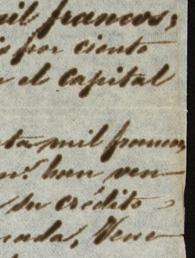 mil francos;
is por ciento
el capital
ta mil francos
han ven
su crédito
nada, Vene